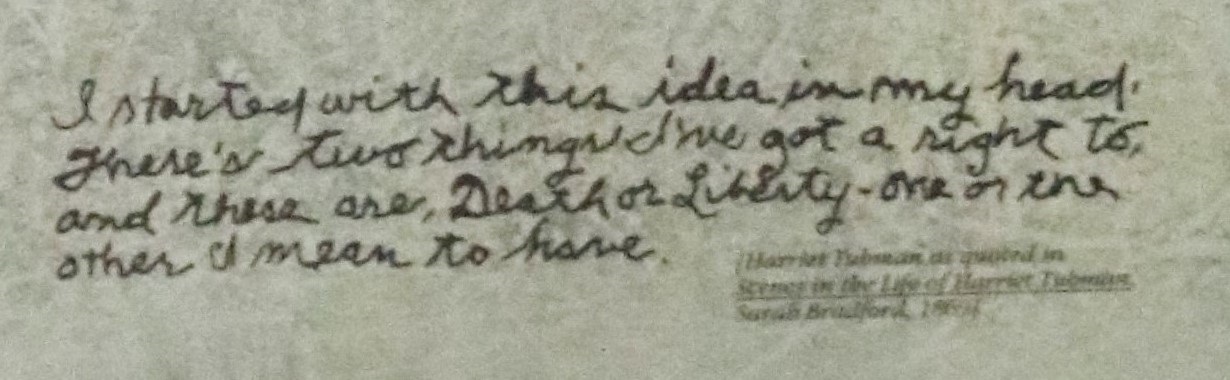 I started with this idea in my head.
There's two things I've got a right to,
and these are, Death or Liberty - one or the
other I mean to have.
[Harriet Tubman as quoted in
Scenes in the Life of Harriet Tubman,
Sarah Bradford,